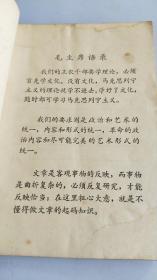 毛主席语录
我们的工农干部要学理论，必须
首先学文化。没有文化，马克思列宁
主义的理论就学不进去。学好了文化，
随时都可学习马克思列宁主义。
我们的要求则是政治和艺术的
统一，内容和形式的统一，革命的政
治内容和尽可能完美的艺术形式的统
一。
文章是客观事物的反映，而事物
是曲折复杂的，必须反复研究，才能
反映恰当；在这里粗心大意，就是不
懂得做文章的起码知识。